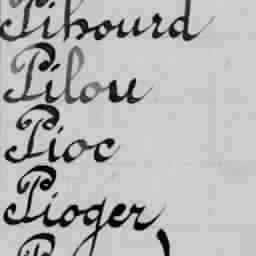 Pibourd
Pilou
Pioc
Pioger